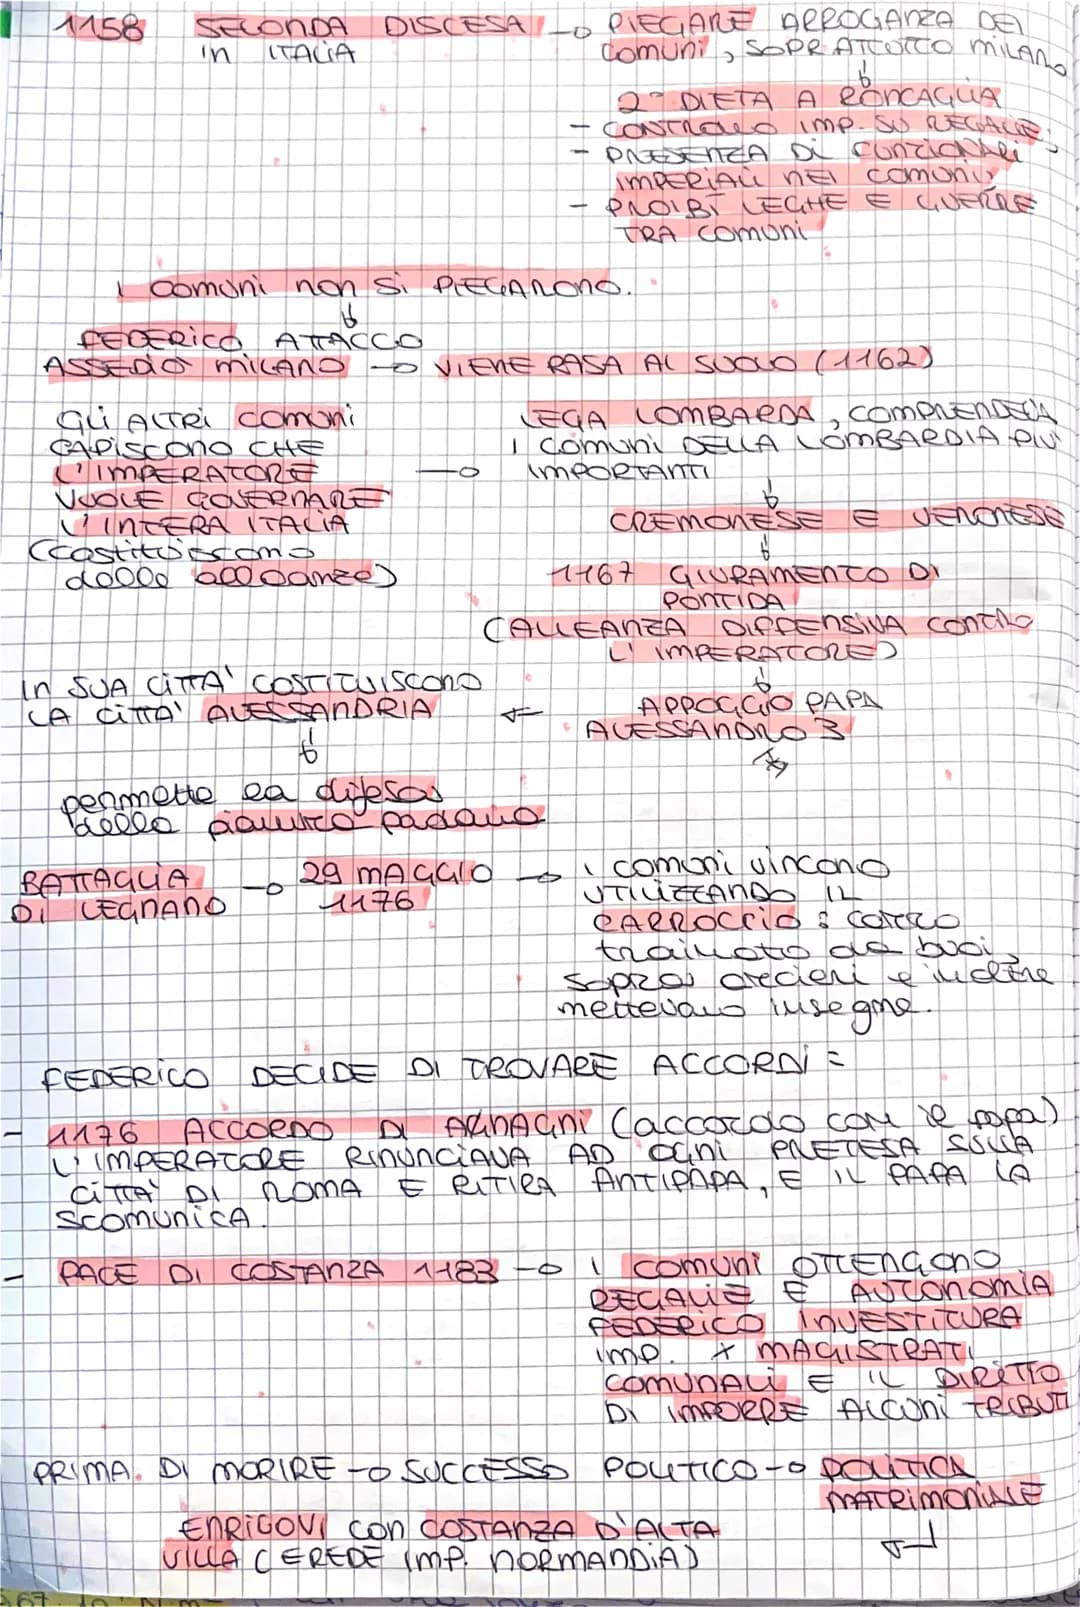 1158 SECONDA DISCESA → PIEGARE ARROGANZA DEI
in ITALIA comuni, SOPRATTUTTO MILANO
2° DIETA A RONCAGLIA
- CONTROLLO IMP. SU REGALIE;
- PRESENZA DI FUNZIONARI
IMPERIALI NEI COMUNI;
- PROIBÌ LEGHE E GUERRE
TRA COMUNI
I comuni non si PIEGARONO.
FEDERICO ATTACCO
ASSEDIO MILANO → VIENE RASA AL SUOLO (1162)
GLI ALTRI COMUNI
CAPISCONO CHE
L'IMPERATORE
VUOLE GOVERNARE
L'INTERA ITALIA
(costituiscono
delle alleanze)
→ LEGA LOMBARDA, COMPRENDEVA
I COMUNI DELLA LOMBARDIA PIU'
IMPORTANTI
CREMONESE E VERONESE
1167 GIURAMENTO DI
PONTIDA
(ALLEANZA DIFFENSIVA CONTRO
L'IMPERATORE)
APPOGGIO PAPA
ALESSANDRO 3
IN SUA CITTA' COSTITUISCONO
LA CITTA' ALESSANDRIA
permette la difesa
della pianura padana
BATTAGLIA
DI LEGNANO → 29 MAGGIO
1176 → i comuni vincono
UTILIZZANDO IL
CARROCCIO: carro
trainato da buoi,
sopra arcieri e inoltre
mettevano insegne.
FEDERICO DECIDE DI TROVARE ACCORDI =
- 1176 ACCORDO DI AGNAGNI (accordo con il papa)
L'IMPERATORE RINUNCIAVA AD OGNI PRETESA SULLA
CITTA' DI ROMA E RITIRA ANTIPAPA, E IL PAPA LA
SCOMUNICA.
- PACE DI COSTANZA 1183 → I comuni OTTENGONO
REGALIE E AUTONOMIA
FEDERICO INVESTITURA
IMP. X MAGISTRATI
COMUNALI E IL DIRITTO
DI IMPORRE ALCUNI TRIBUTI
PRIMA DI MORIRE → SUCCESSO POLITICO → POLITICA
MATRIMONIALE
ENRICO VI CON COSTANZA D'ALTA
VILLA (EREDE IMP. NORMANDIA)